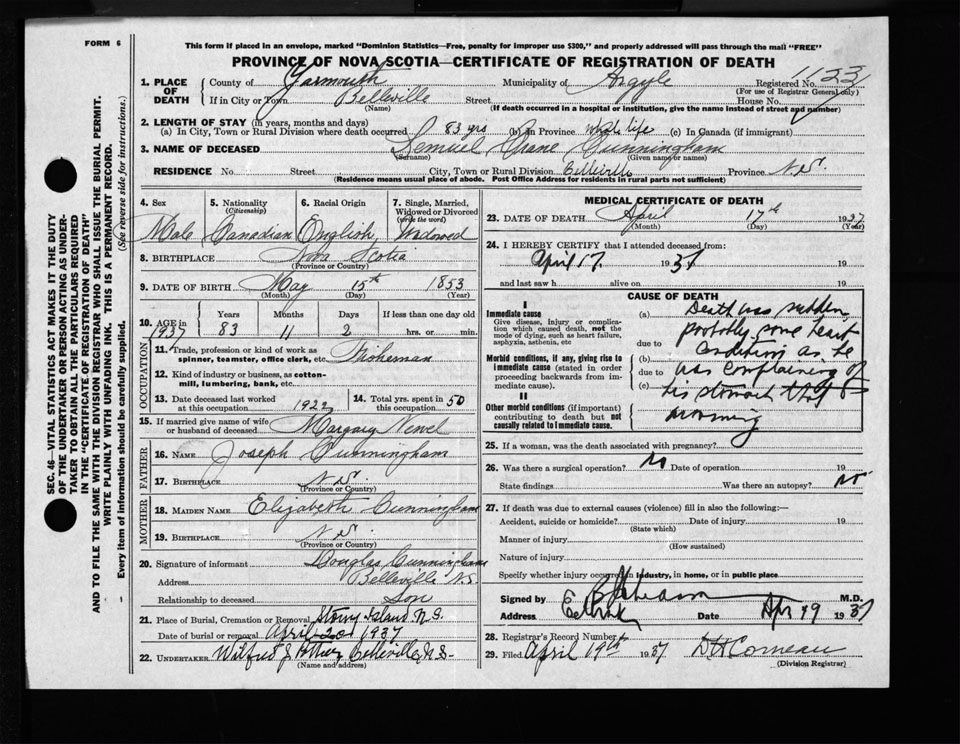 FORM 6
This form if placed in an envelope, marked "Dominion Statistics—Free, penalty for improper use $300," and properly addressed will pass through the mail "FREE"
PROVINCE OF NOVA SCOTIA—CERTIFICATE OF REGISTRATION OF DEATH
SEC. 46—VITAL STATISTICS ACT MAKES IT THE DUTY
OF THE UNDERTAKER OR PERSON ACTING AS UNDER-
TAKER TO OBTAIN ALL THE PARTICULARS REQUIRED
IN THE "CERTIFICATE OF REGISTRATION OF DEATH"
AND TO FILE THE SAME WITH THE DIVISION REGISTRAR WHO SHALL ISSUE THE BURIAL PERMIT.
WRITE PLAINLY WITH UNFADING INK. THIS IS A PERMANENT RECORD.
Every item of information should be carefully supplied. (See reverse side for instructions.)
1. PLACE OF DEATH County of Yarmouth Municipality of Argyle Registered No. 1123
(For use of Registrar General only)
If in City or Town Belleville Street House No.
(Name) (If death occurred in a hospital or institution, give the name instead of street and number)
2. LENGTH OF STAY (in years, months and days)
(a) In City, Town or Rural Division where death occurred 83 yrs (b) in Province whole life (c) In Canada (if immigrant)
3. NAME OF DECEASED Lemuel Crane Cunningham
(Surname) (Given name or names)
RESIDENCE No. Street City, Town or Rural Division Belleville Province N.S.
(Residence means usual place of abode. Post Office Address for residents in rural parts not sufficient)
4. Sex 5. Nationality (Citizenship) 6. Racial Origin 7. Single, Married, Widowed or Divorced (write the word)
Male Canadian English Widowed
8. BIRTHPLACE Nova Scotia
(Province or Country)
9. DATE OF BIRTH May 15th 1853
(Month) (Day) (Year)
10. AGE in 1937 Years 83 Months 11 Days 2 If less than one day old hrs. or min.
OCCUPATION
11. Trade, profession or kind of work as spinner, teamster, office clerk, etc. Fisherman
12. Kind of industry or business, as cotton-mill, lumbering, bank, etc.
13. Date deceased last worked at this occupation 1922 14. Total yrs. spent in this occupation 50
15. If married give name of wife or husband of deceased Margary Newel
FATHER
16. NAME Joseph Cunningham
17. BIRTHPLACE N.S.
(Province or Country)
MOTHER
18. MAIDEN NAME Elizabeth Cunningham
19. BIRTHPLACE N.S.
(Province or Country)
20. Signature of informant Douglas Cunningham
Address Belleville N.S.
Relationship to deceased Son
21. Place of Burial, Cremation or Removal Stony Island N.S.
Date of burial or removal April 20 1937
22. UNDERTAKER Wilfred J Belleville N.S.
(Name and address)
MEDICAL CERTIFICATE OF DEATH
23. DATE OF DEATH April 17th 1937
(Month) (Day) (Year)
24. I HEREBY CERTIFY that I attended deceased from:
April 17 1937 19
and last saw h alive on 19
CAUSE OF DEATH
I
Immediate cause
Give disease, injury or complication which caused death, not the mode of dying, such as heart failure, asphyxia, asthenia, etc
Morbid conditions, if any, giving rise to immediate cause (stated in order proceeding backwards from immediate cause).
II
Other morbid conditions (if important) contributing to death but not causally related to immediate cause.
(a) Death was sudden
due to probably some heart
(b) condition as he
due to was complaining of
(c) his stomach that
morning
25. If a woman, was the death associated with pregnancy?
26. Was there a surgical operation? No Date of operation 19
State findings Was there an autopsy? No
27. If death was due to external causes (violence) fill in also the following:—
Accident, suicide or homicide? Date of injury 19
(State which)
Manner of injury
(How sustained)
Nature of injury
Specify whether injury occurred in industry, in home, or in public place
Signed by M.D.
Address Date Apr 19 1937
28. Registrar's Record Number
29. Filed April 19th 1937 D H Comeau
(Division Registrar)